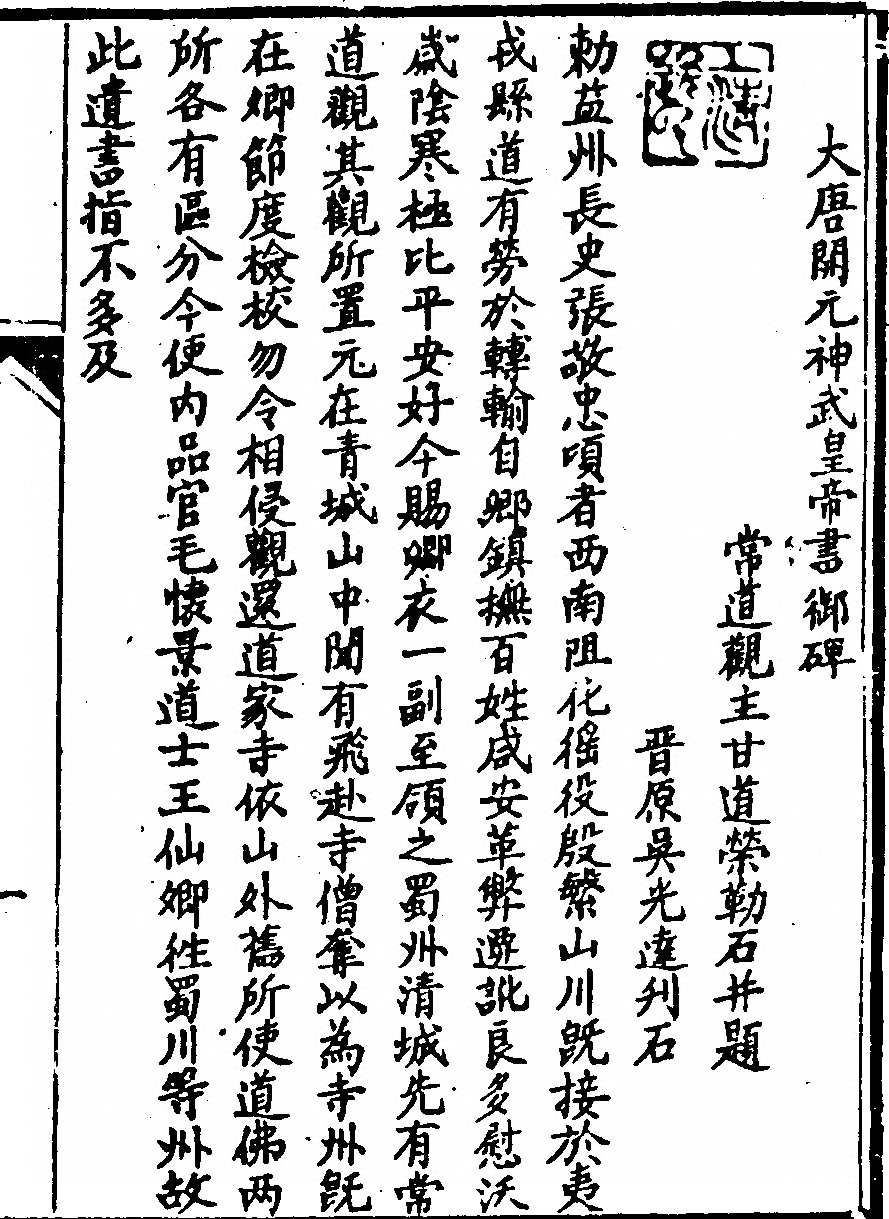 大唐開元神武皇帝書御碑
常道觀主甘道榮勒石并題
晋原吳光逵刋石
勅益州長史張敬忠頃者西南阻化徭役殷繁山川旣接於夷
戎縣道有勞於轉輸自卿鎮撫百姓咸安革弊遷訛良多慰沃
歲陰寒極比平安好今賜卿衣一副至領之蜀州清城先有常
道觀其觀所置元在青城山中聞有飛赴寺僧奪以為寺州旣
在卿節度檢校勿令相侵觀還道家寺依山外舊所使道佛两
所各有區分今使內品官毛懷景道士王仙卿徃蜀川等州故
此遺書指不多及